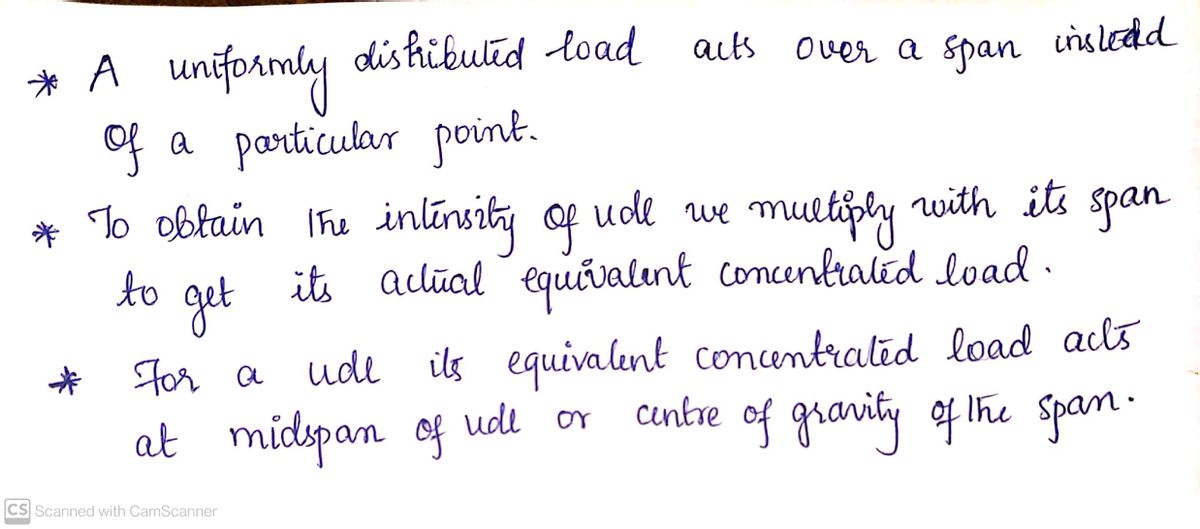 * A uniformly distributed load acts over a span instead
of a particular point.
* To obtain the intensity of udl we multiply with its span
to get its actual equivalent concentrated load.
* For a udl its equivalent concentrated load acts
at midspan of udl or centre of gravity of the span.
CS Scanned with CamScanner